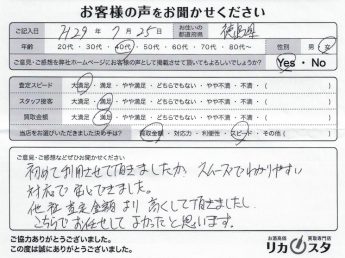 お客様の声をお聞かせください
ご記入日 H29年 7月 25日 お住いの都道府県 徳島県
年齢 20代・30代・40代・50代・60代・70代・80代〜 性別 男・女
ご意見・ご感想を弊社ホームページにお客様の声として掲載させて頂いてもよろしいでしょうか? Yes・No
査定スピード 大満足・満足・やや満足・どちらでもない・やや不満・不満・( )
スタッフ接客 大満足・満足・やや満足・どちらでもない・やや不満・不満・( )
買取金額 大満足・満足・やや満足・どちらでもない・やや不満・不満・( )
当店をお選びいただきました決め手は? 買取金額・対応力・利便性・スピード・その他( )
ご意見・ご感想などぜひお聞かせください
初めて利用させて頂きましたが、スムーズでわかりやすい
対応で安心できました。
他社査定金額より高くして頂きましたし、
こちらでお任せしてよかったと思います。
ご協力ありがとうございました。
この度は誠にありがとうございました。
お酒高価 買取専門店
リカスタ